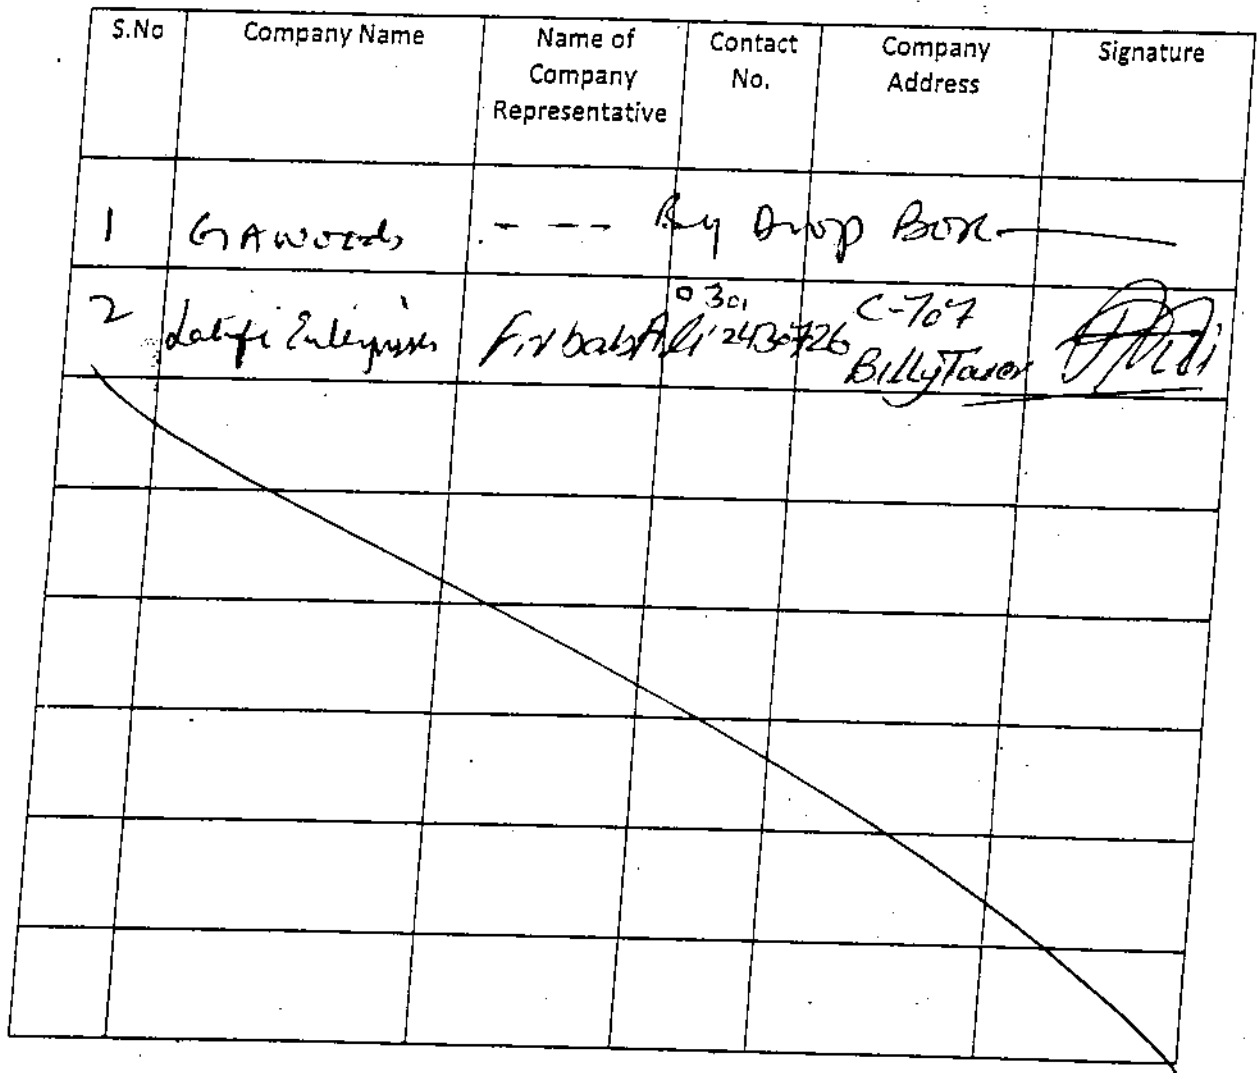 S.No Company Name Name of Company Representative Contact No. Company Address Signature
1 GAwoods - - - By Drop Box
2 Latifi Enterprises Ali 0301 2430726 C-707 Billy Tower